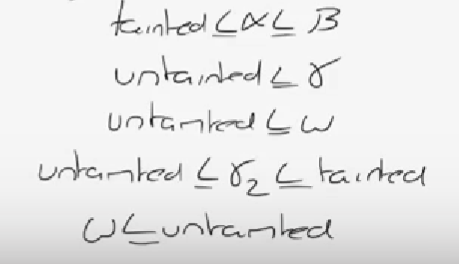 tainted ≤ α ≤ β
untainted ≤ γ
untainted ≤ ω
untainted ≤ γ₂ ≤ tainted
ω ≤ untainted